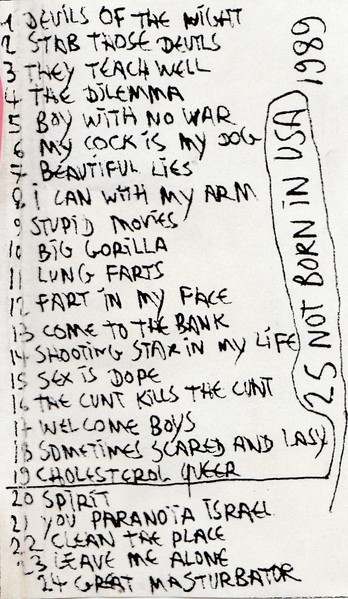 1 DEVILS OF THE NIGHT
2 STAB THOSE DEVILS
3 THEY TEACH WELL
4 THE DILEMMA
5 BOY WITH NO WAR
6 MY COCK IS MY DOG
7 BEAUTIFUL LIES
8 I CAN WITH MY ARM
9 STUPID MOVIES
10 BIG GORILLA
11 LUNG FARTS
12 FART IN MY FACE
13 COME TO THE BANK
14 SHOOTING STAR IN MY LIFE
15 SEX IS DOPE
16 THE CUNT KILLS THE CUNT
17 WELCOME BOYS
18 SOMETIMES SCARED AND LASY
19 CHOLESTEROL QUEER
20 SPIRIT
21 YOU PARANOÏA ISRAEL
22 CLEAN THE PLACE
23 LEAVE ME ALONE
24 GREAT MASTURBATOR
25 NOT BORN IN USA
1989